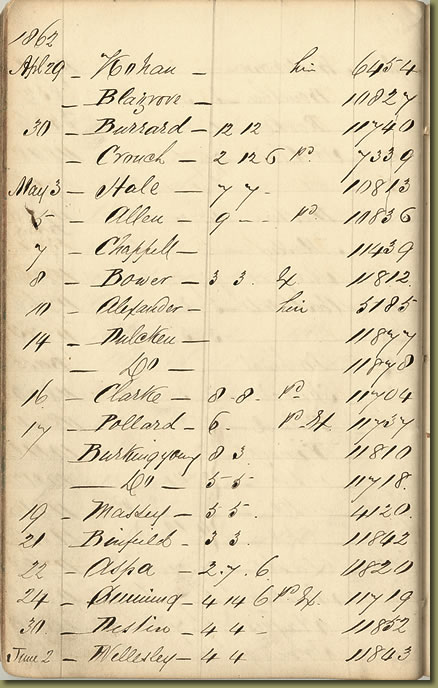 1862
Apl 29 - Hohan - hin 6454
- Blagrove - 10827
30 - Buzzard - 12 12 11740
- Crouch - 2 12 6 pd. 7339
May 3 - Hale - 7 7 - 10813
5 - Allen - 9 - - pd. 10836
7 - Chappell - 11439
8 - Bower - 3 3. Ex 11812.
10 - Alexander - hin 5185
14 - Dulcken - 11877
- Do - 11878
16 - Clarke - 8 - 8 - pd 11704
17 - Pollard - 6. pd Ex. 11737
Burkingyoung 8 3 11810
- Do - 5 5 11718.
19 - Massey - 5 5. 4120.
21 - Binfield - 3 3. 11842
22 - Aspa - 2. 7. 6 11820
24 - 4 14 6 pd Ex. 11719
30. - Distin - 4 4 - 11852
June 2 - Wellesley - 4 4 11843